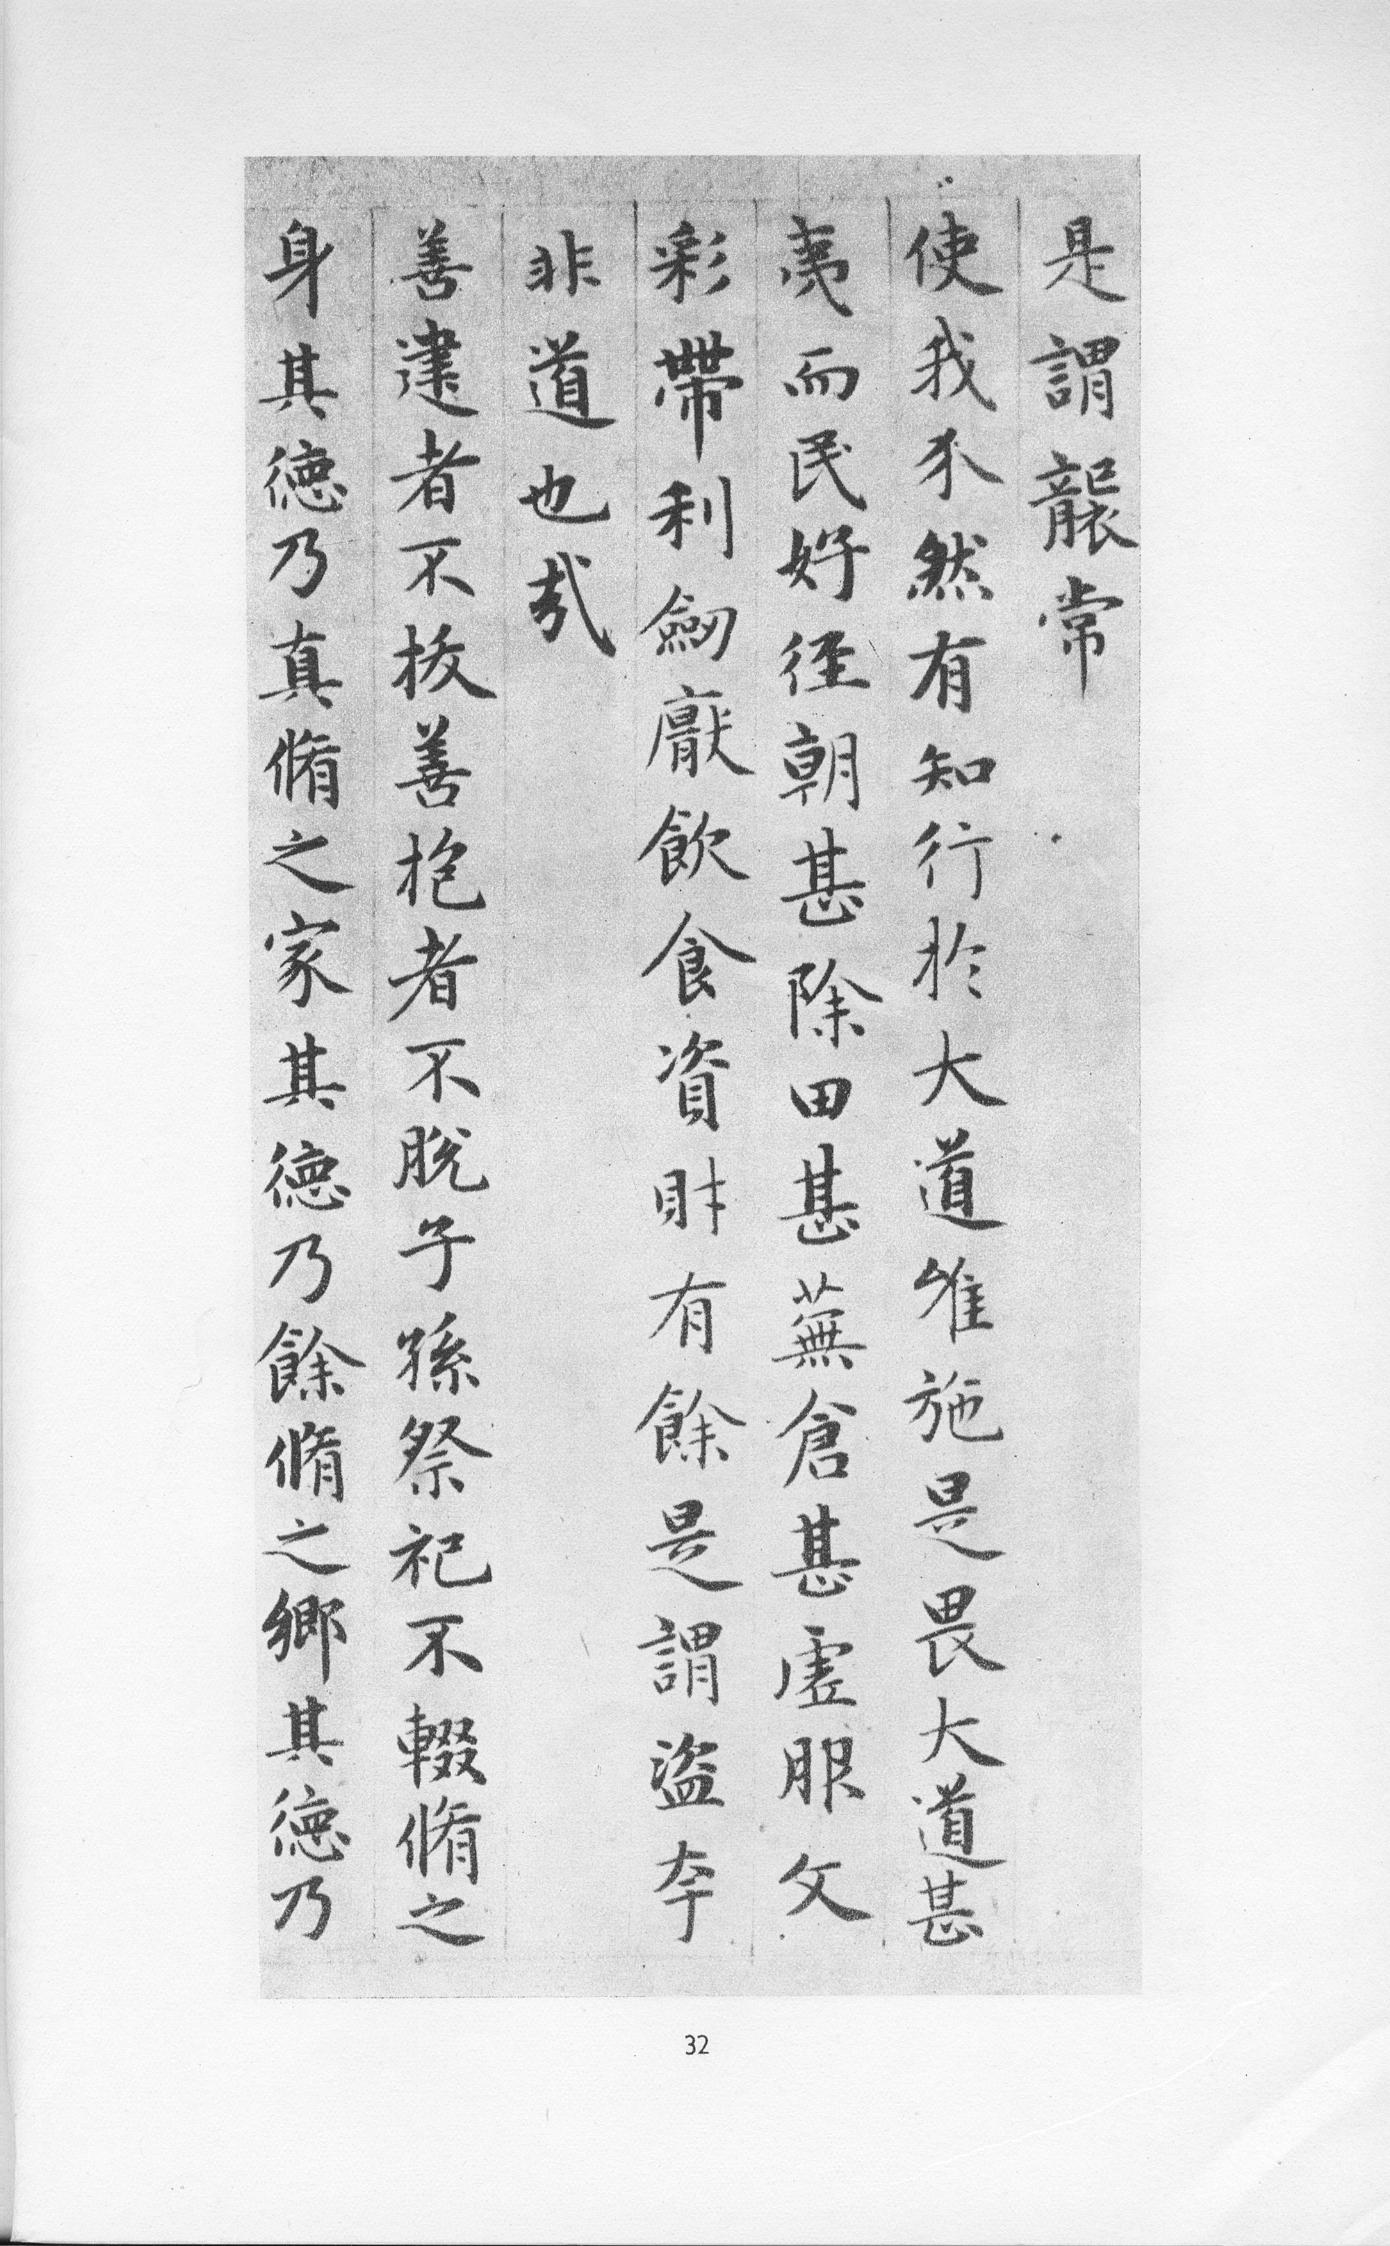 是謂襲常
使我介然有知行於大道唯施是畏大道甚
夷而民好徑朝甚除田甚蕪倉甚虛服文
彩帶利劔厭飲食資財有餘是謂盜夸
非道也哉
善建者不拔善抱者不脫子孫祭祀不輟脩之
身其德乃真脩之家其德乃餘脩之鄉其德乃
32